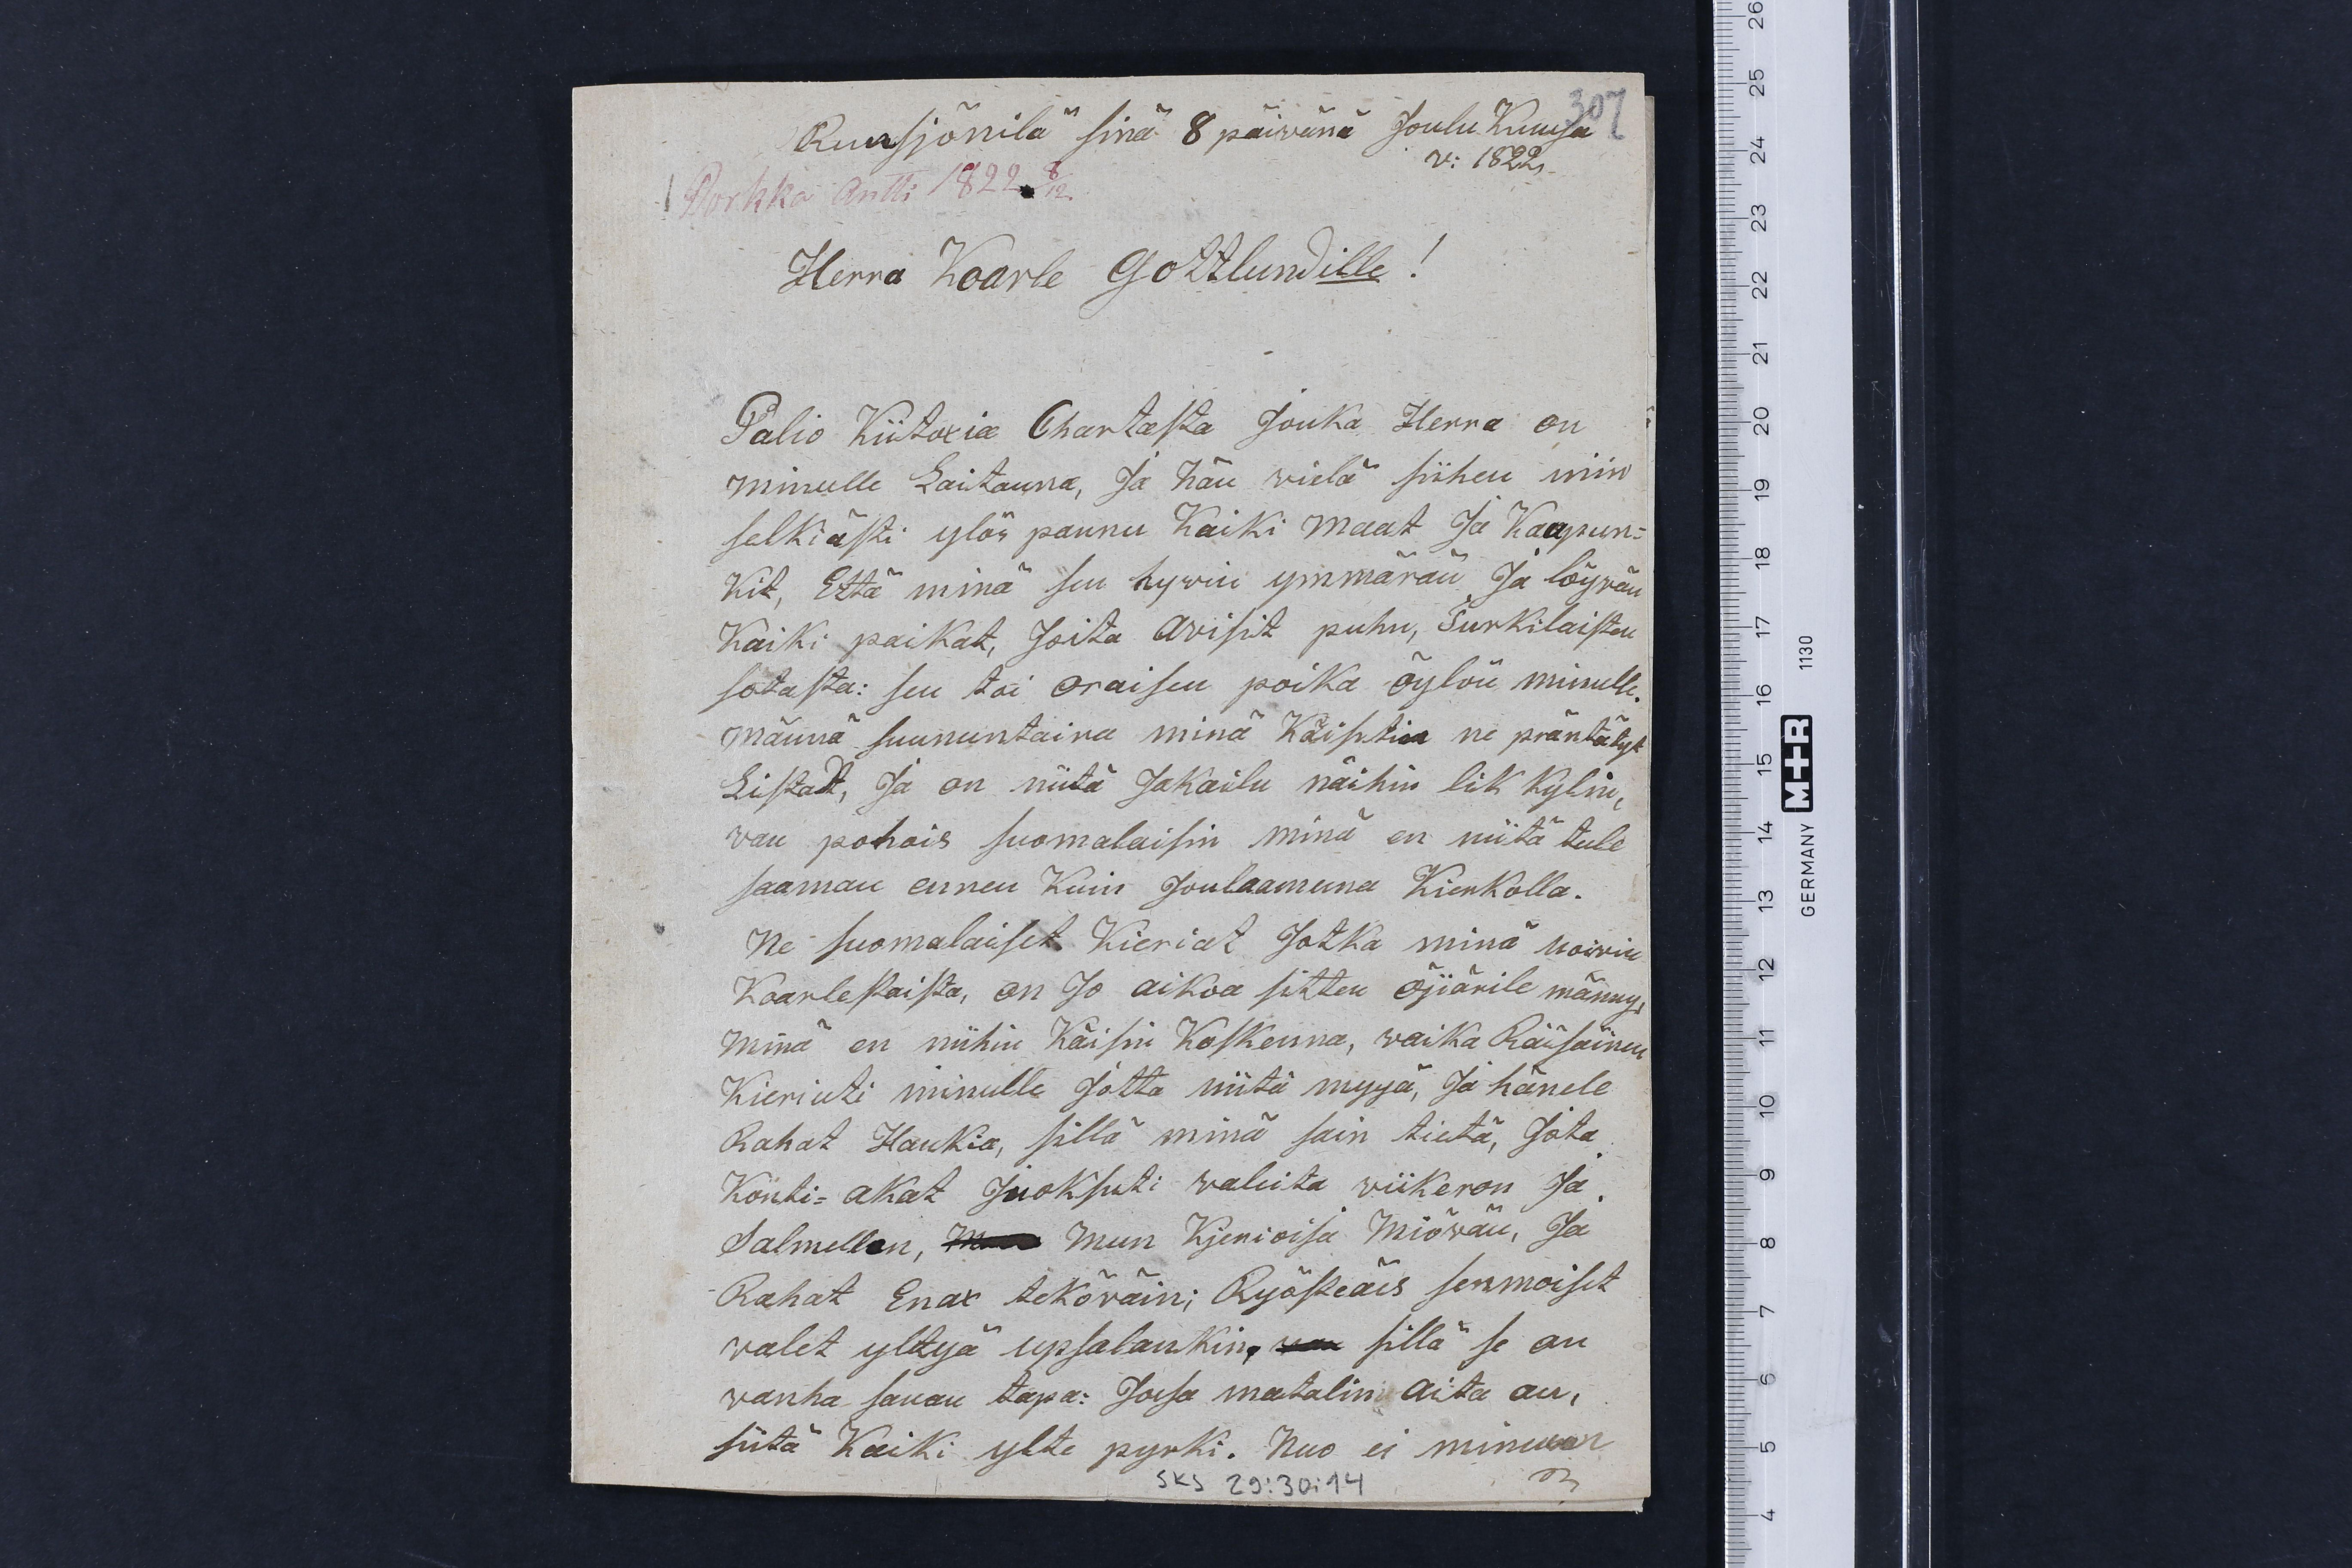 307
Runsjönilä sinä 8 päivänä Joulu Kuusa
v: 1822
Porkka Antti 1822 8/12
Herra Koarle Gottlundille!
Palio Kiitoxia Chartasta Jonka Herra on
minulle Laitanna, Ja hän vielä siihen niin
selkiästi ylös pannu Kaiki maat Ja Kaapun=
kit, Että minä sen hyvin ymmärän Ja löyvän
Kaiki paikat, Joita Avisit puhu, Turkilaisten
sotasta: sen toi oraisen poika öylön minulle.
Männä suununtaina minä Käisin ne präntätyt
Listat, Ja on niitä Jakailu näihin lik Kylin,
van pohois suomalaisin minä en niitä tule
saaman ennen Kuin Joulaamuna Kirkolla.
Ne suomalaiset Kieriat Jotka minä noivin
Koarlestaista, on Jo aikoa sitten öjiärile männy,
Minä en niihin Käisin Koskenna, vaika Räisäinen
Kieriuti minulle Jotta niitä myyä, Ja hänele
Rahat Haukia, sillä minä sain tietä, Jota
Könti=akat Juoksuti valeita viikeron Ja
Salmellen, Mun Kjerioisa Miövän, Ja
Rahat Enax tekövain; Ryösteäis senmoiset
valet yltyä upsalankin, sillä se on
vanha sanan tapa: Josa matalin Aita on,
siitä Kaiki ylte pyrki. Nuo ei minuun
SKS 29:30:14
GERMANY M+R 1130
26
25
24
23
22
21
20
19
18
17
16
15
14
13
12
11
10
9
8
7
6
5
4